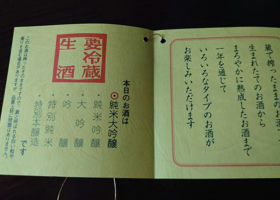 蔵で搾ったままのお酒
生まれたてのお酒から
まろやかに熟成したお酒まで
一年を通じて
いろいろなタイプのお酒が
お楽しみいただけます
要冷蔵
生酒
本日のお酒は
純米大吟醸
・純米吟醸
・大吟醸
・吟醸
・特別純米
・特別本醸造
です